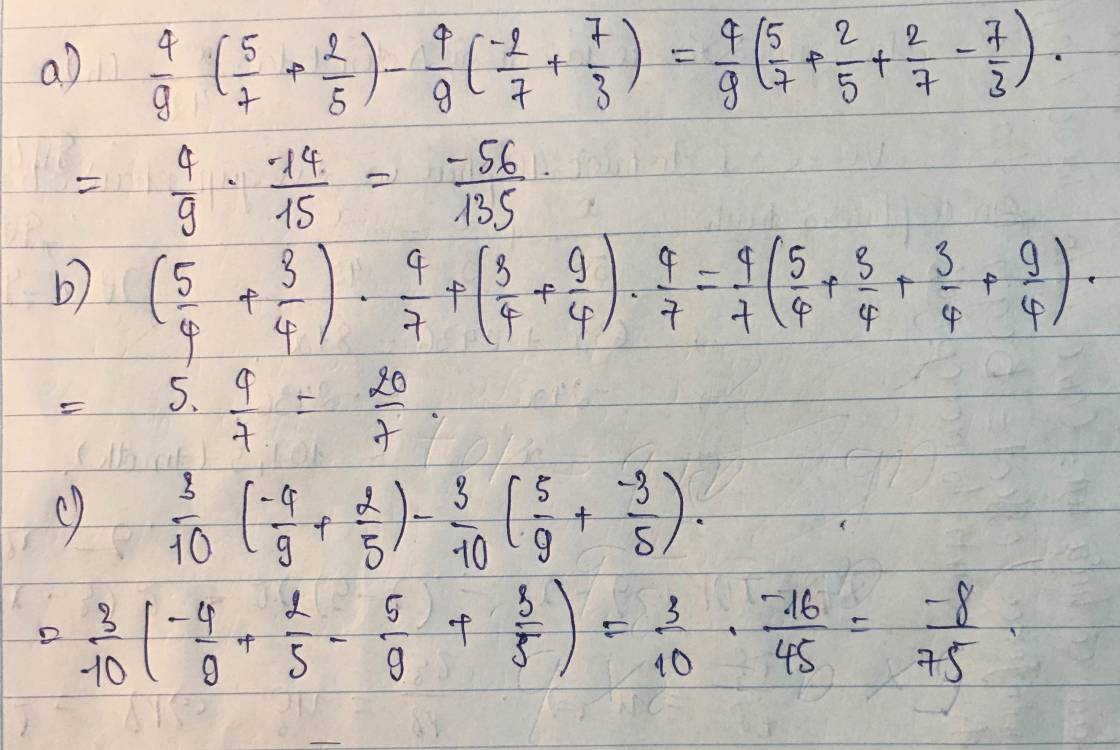 a) 4/9 (5/7 + 2/5) - 4/9 (-2/7 + 7/3) = 4/9 (5/7 + 2/5 + 2/7 - 7/3) .
= 4/9 . -14/15 = -56/135 .
b) (5/4 + 3/4) . 4/7 + (3/4 + 9/4) . 4/7 = 4/7 (5/4 + 3/4 + 3/4 + 9/4) .
= 5. 4/7 = 20/7 .
c) 3/10 (-4/9 + 2/5) - 3/10 (5/9 + -3/5) .
= 3/10 (-4/9 + 2/5 - 5/9 + 3/5) = 3/10 . -16/45 = -8/75 .